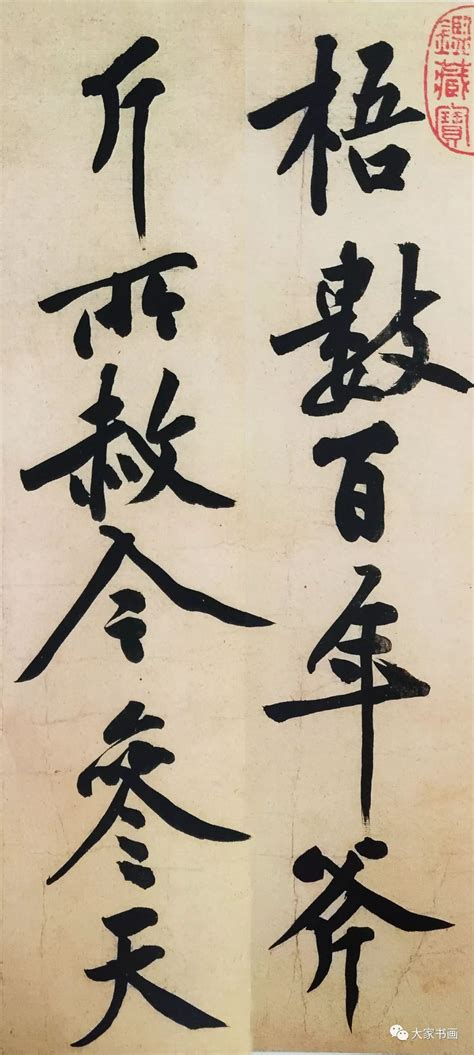 鑑藏寶
梧數百年斧
斤所赦今參天
大家书画